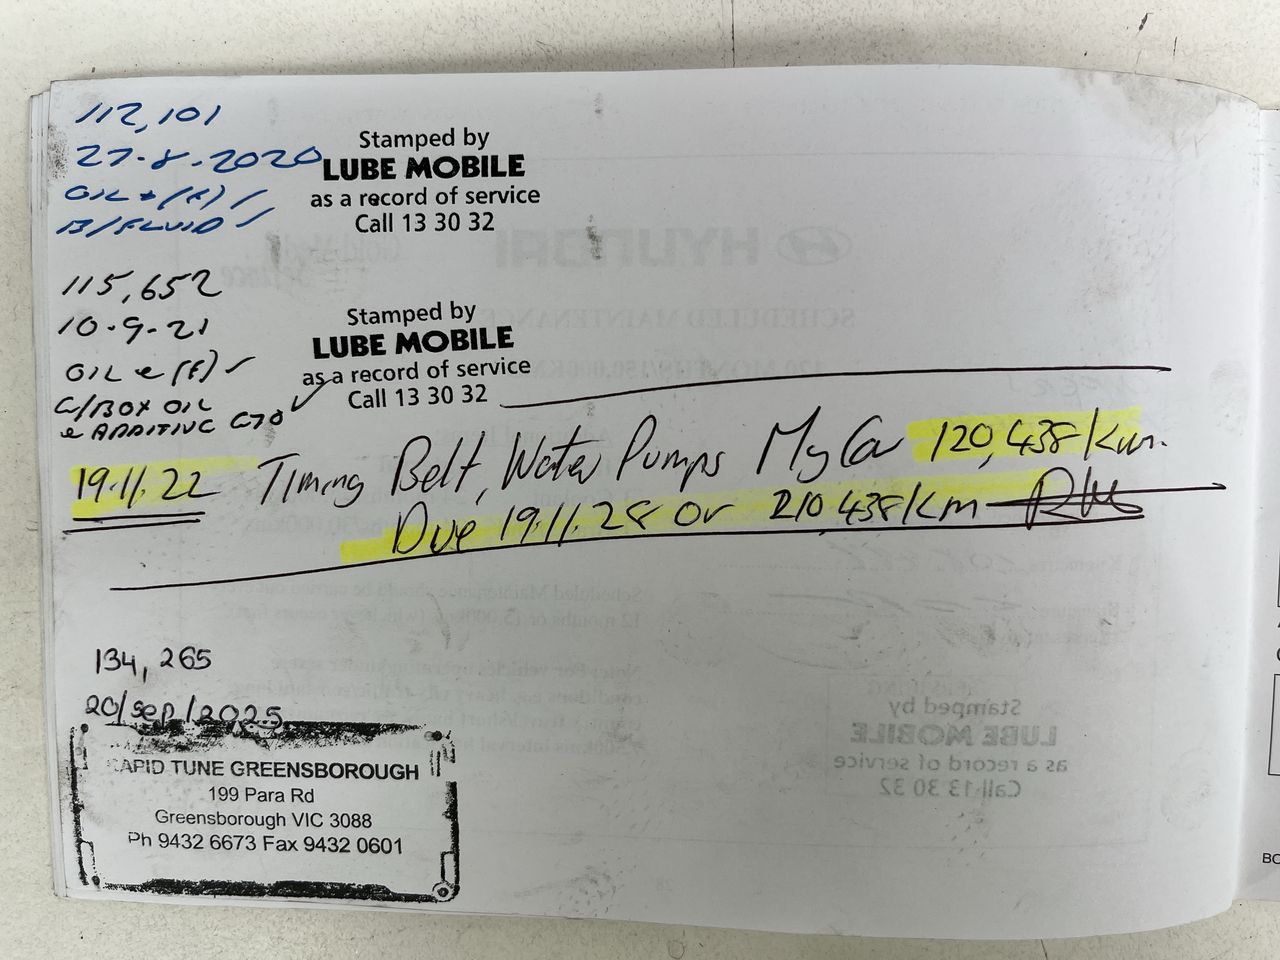 112,101
27-8-2020
OIL + (F) ✓
B/FLUID ✓
Stamped by
LUBE MOBILE
as a record of service
Call 13 30 32
115,652
10-9-21
OIL e (F) ✓
G/BOX OIL
e ADDITIVE C70 ✓
Stamped by
LUBE MOBILE
as a record of service
Call 13 30 32
19.11.22 Timing Belt, Water Pumps My Car 120,438/km.
Due 19.11.28 or 210,438/km
134,265
20/sep/2025
APID TUNE GREENSBOROUGH
199 Para Rd
Greensborough VIC 3088
Ph 9432 6673 Fax 9432 0601
HYUNDAI
SCHEDULED MAINTENANCE
Stamped by
LUBE MOBILE
as a record of service
Call 13 30 32